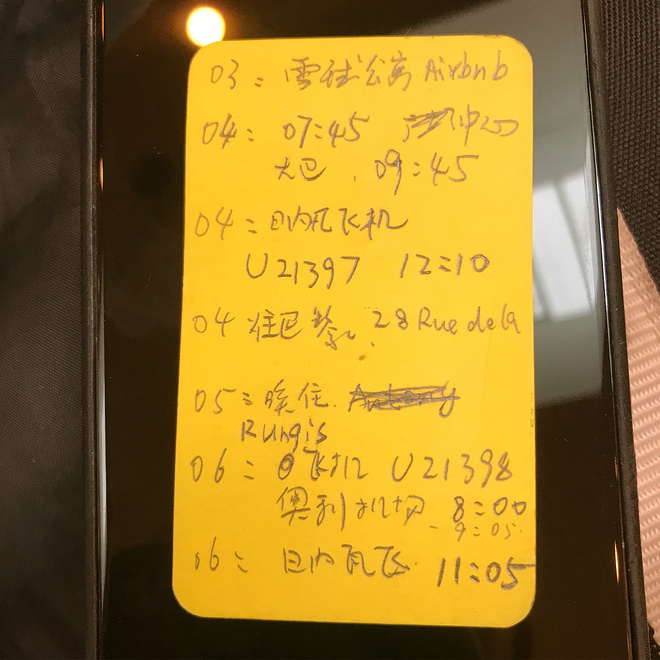 03: 雪球公寓 Airbnb
04: 07:45
大巴. 09:45
04: 日内瓦飞机
U21397 12:10
04 住巴黎. 28 Rue de la
05: 晚住.
Rungis
06: 飞机 U21398
奥利机场 8:00
- 9:05.
06: 日内瓦飞. 11:05